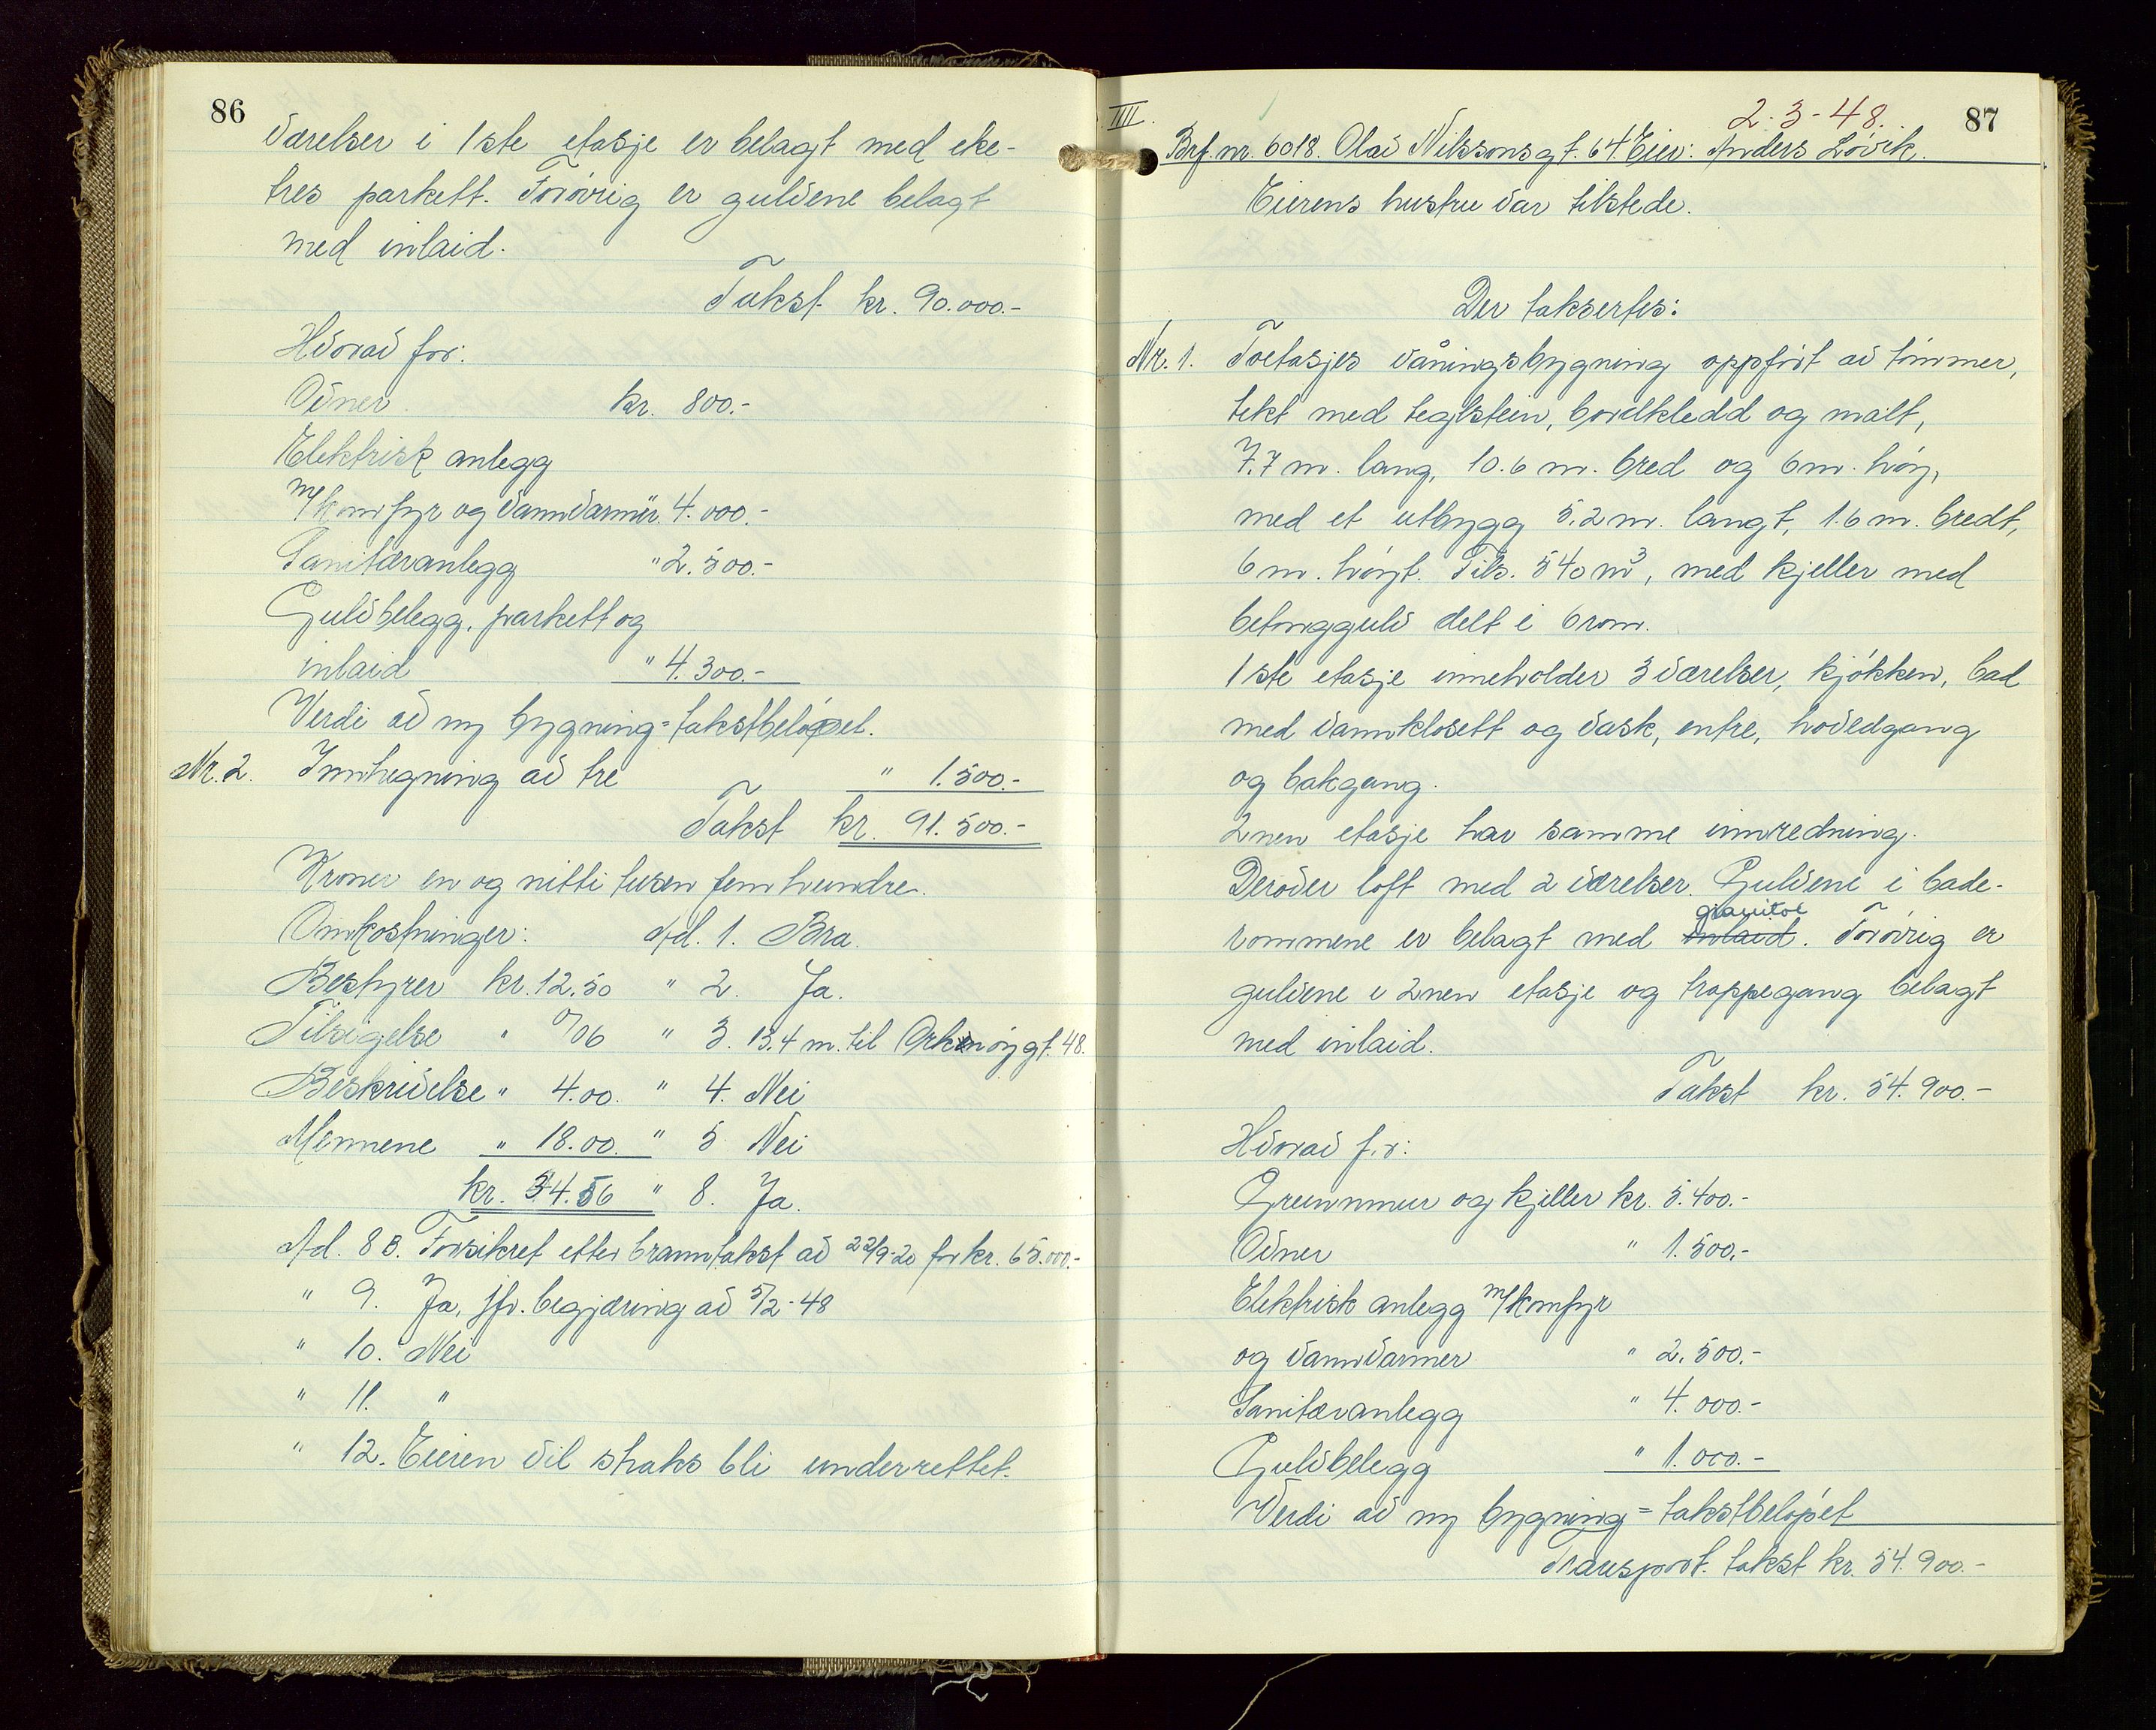 86
værelser i 1ste etasje er belagt med eke-
tres parkett. Forøvrig er gulvene belagt
med inlaid.
Takst kr. 90.000.-
Hvorav for:
Ovner kr. 800.-
Elektrisk anlegg
m/komfyr og vannvarmer. 4.000.-
Sanitæranlegg " 2.500.-
Gulvbelegg, parkett og
inlaid " 4.300.-
Verdi av ny bygning = takstbeløpet.
Nr. 2. Innhegning av tre " 1.500.-
Takst kr. 91.500.-
Kroner en og nitti tusen fem hundre.
Omkostninger: Ad. 1. Bra.
Bestyrer kr. 12.50 " 2. Ja.
Tilsigelse " 0/06 " 3. 13.4 m. til Orknøygt. 48.
Beskrivelse " 4.00. " 4. Nei
Mennene " 18.00. " 5 Nei
kr. 34.56 " 8. Ja.
Ad. 8 B. Forsikret etter branntakst av 22/9-20 for kr. 65.000.-
" 9. Ja, jfr. begjæring av 5/2-48
" 10. Nei
" 11. "
" 12. Eieren vil straks bli underrettet.
87
2-3-48.
IIII.
Brf. nr. 6018. Olav Nilssonsgt. 64. Eier: Anders Løvik.
Eierens hustru var tilstede.
Der taksertes:
Nr. 1. Toetasjes våningsbygning oppført av tømmer,
tekt med teglstein, bordkledd og malt,
7.7 m. lang, 10.6 m. bred og 6 m. høy,
med et utbygg 5.2 m. langt, 1.6 m. bredt,
6 m. høyt. Tils. 540 m³, med kjeller med
betonggulv delt i 6 rom.
1ste etasje inneholder 3 værelser, kjøkken, bad
med vannklosett og vask, entre, hovedgang
og bakgang.
2nen etasje har samme innredning.
Derover loft med 2 værelser. Gulvene i bade-
granitol
rommene er belagt med inlaid. Forøvrig er
gulvene i 2nen etasje og trappegang belagt
med inlaid.
Takst kr. 54.900.-
Hvorav for:
Grunnmur og kjeller kr. 5.400.-
Ovner " 1.500.-
Elektrisk anlegg m/komfyr
og vannvarmer " 2.500.-
Sanitæranlegg " 4.000.-
Gulvbelegg " 1.000.-
Verdi av ny bygning = takstbeløpet
Transport. takst kr. 54.900.-